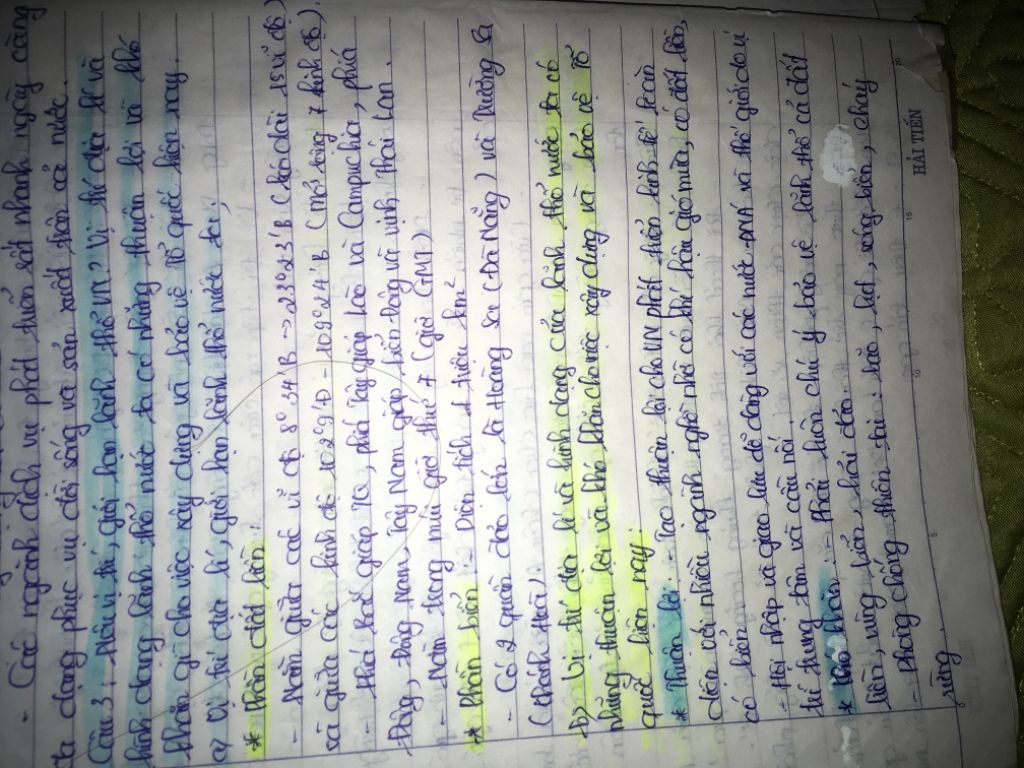 - Các ngành dịch vụ phát triển rất nhanh ngày càng
đa dạng phục vụ đời sống và sản xuất trên cả nước.
Câu 3: Nêu vị trí, giới hạn lãnh thổ VN? Vị trí địa lí và
hình dạng lãnh thổ nước ta có những thuận lợi và khó
khăn gì cho việc xây dựng và bảo vệ tổ quốc hiện nay.
a) Vị trí địa lí, giới hạn lãnh thổ nước ta:
* Phần đất liền:
- Nằm giữa các vĩ độ 8°34'B → 23°23'B (kéo dài 15 vĩ độ)
và giữa các kinh độ 102°9'Đ - 109°24'B (mở rộng 7 kinh độ).
- Phía Bắc giáp TQ, phía tây giáp Lào và Campuchia, phía
Đông, Đông Nam, Tây Nam giáp biển Đông và vịnh Thái Lan.
- Nằm trong múi giờ thứ 7 (giờ GMT)
* Phần biển: - Diện tích 1 triệu km²
- Có 2 quần đảo lớn là Hoàng Sa (Đà Nẵng) và Trường Sa
(Khánh Hoà).
b) Vị trí địa lí và hình dạng của lãnh thổ nước ta có
những thuận lợi và khó khăn cho việc xây dựng và bảo vệ tổ
quốc hiện nay:
* Thuận lợi: - Tạo thuận lợi cho VN phát triển kinh tế toàn
diện với nhiều ngành nghề nhờ có khí hậu gió mùa, có đất liền,
có biển.
- Hội nhập và giao lưu dễ dàng với các nước ĐNÁ và thế giới do vị
trí trung tâm và cầu nối.
* Khó khăn: - Phải luôn chú ý bảo vệ lãnh thổ cả đất
liền, vùng biển, hải đảo.
- Phòng chống thiên tai: bão, lụt, sóng biển, cháy
rừng.
HẢI TIẾN
5
10
15
20